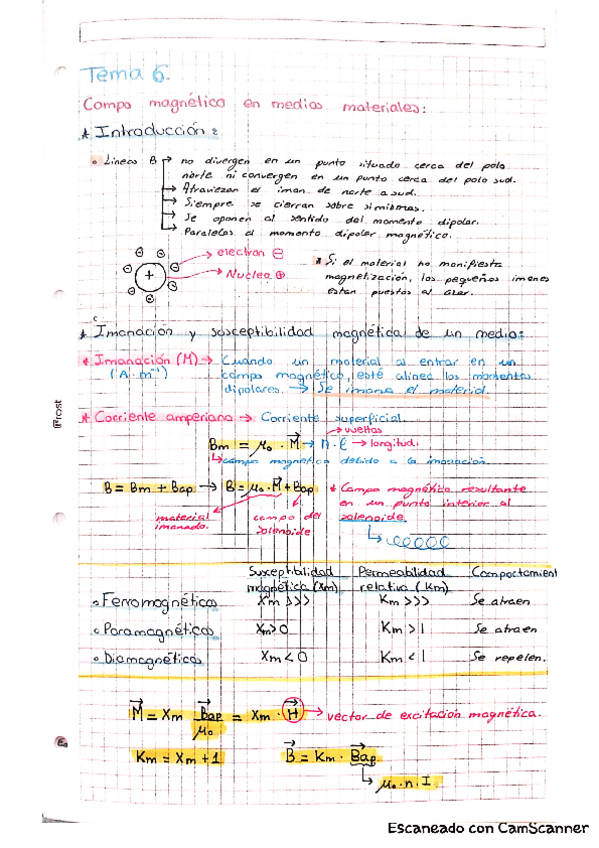 Tema 6.
Campo magnético en medios materiales:
* Introducción:
• Lineas B → no divergen en un punto situado cerca del polo
norte ni convergen en un punto cerca del polo sud.
→ Atraviezan el iman de norte a sud.
→ Siempre se cierran sobre si mismas.
→ Se oponen al sentido del momento dipolar.
→ Paralelas al momento dipolar magnético.
→ electron ⊖
→ Nucleo ⊕
* Si el material no manifiesta
magnetización, los pequeños imanes
estan puestos al azar.
* Imanación y susceptibilidad magnética de un medio:
* Imanación (M) → Cuando un material al entrar en un
(A·m⁻¹) campo magnético, esté alinea los momentos
dipolares. → Se imana el material.
* Corriente amperiana → Corriente superficial.
→ vueltas
Bm = μ₀ · M → n · l → longitud.
↳ campo magnético debido a la imanación.
B = Bm + Bap → B = μ₀ · M + Bap
* Campo magnético resultante
en un punto interior al
solenoide.
material
imanado.
campo del
solenoide
Susceptibilidad Permeabilidad Compoctamient
magnética (Xm) relativa (Km)
• Ferromagnéticos Xm >>> Km >>> Se atraen
• Paramagnéticos Xm > 0 Km > 1 Se atraen
• Diamagnéticos Xm < 0 Km < 1 Se repelen.
M = Xm Bap/μ₀ = Xm · H → vector de excitación magnética.
Km = Xm + 1 B = Km · Bap
↳ μ₀ · n · I
Escaneado con CamScanner